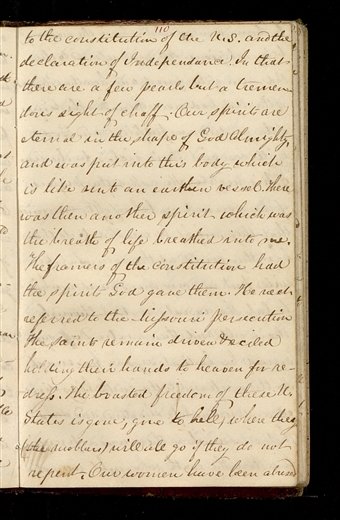 110
to the constitution of the U.S. and the
declaration of Independance. In that
there are a few pearls but a tremen
dous sight of chaff. Our spirit are
eternal in the shape of God Almighty,
and was put into this body which
is like unto an earthen vessel. There
was then another spirit which was
the breath of life breathed into me.
The framers of the constitution had
the spirit God gave them. He next
referred to the Missouri persecution
The saints remain driven &
holding their hands to heaven for re-
dress. The boasted freedom of these U.
States is gone, gone to hell, where they
(the nobblers) will all go if they do not
repent. Our women have been abused